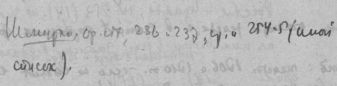 Шмурло, ор. cit., 236-237, ср. и 254-5 (иной
список).